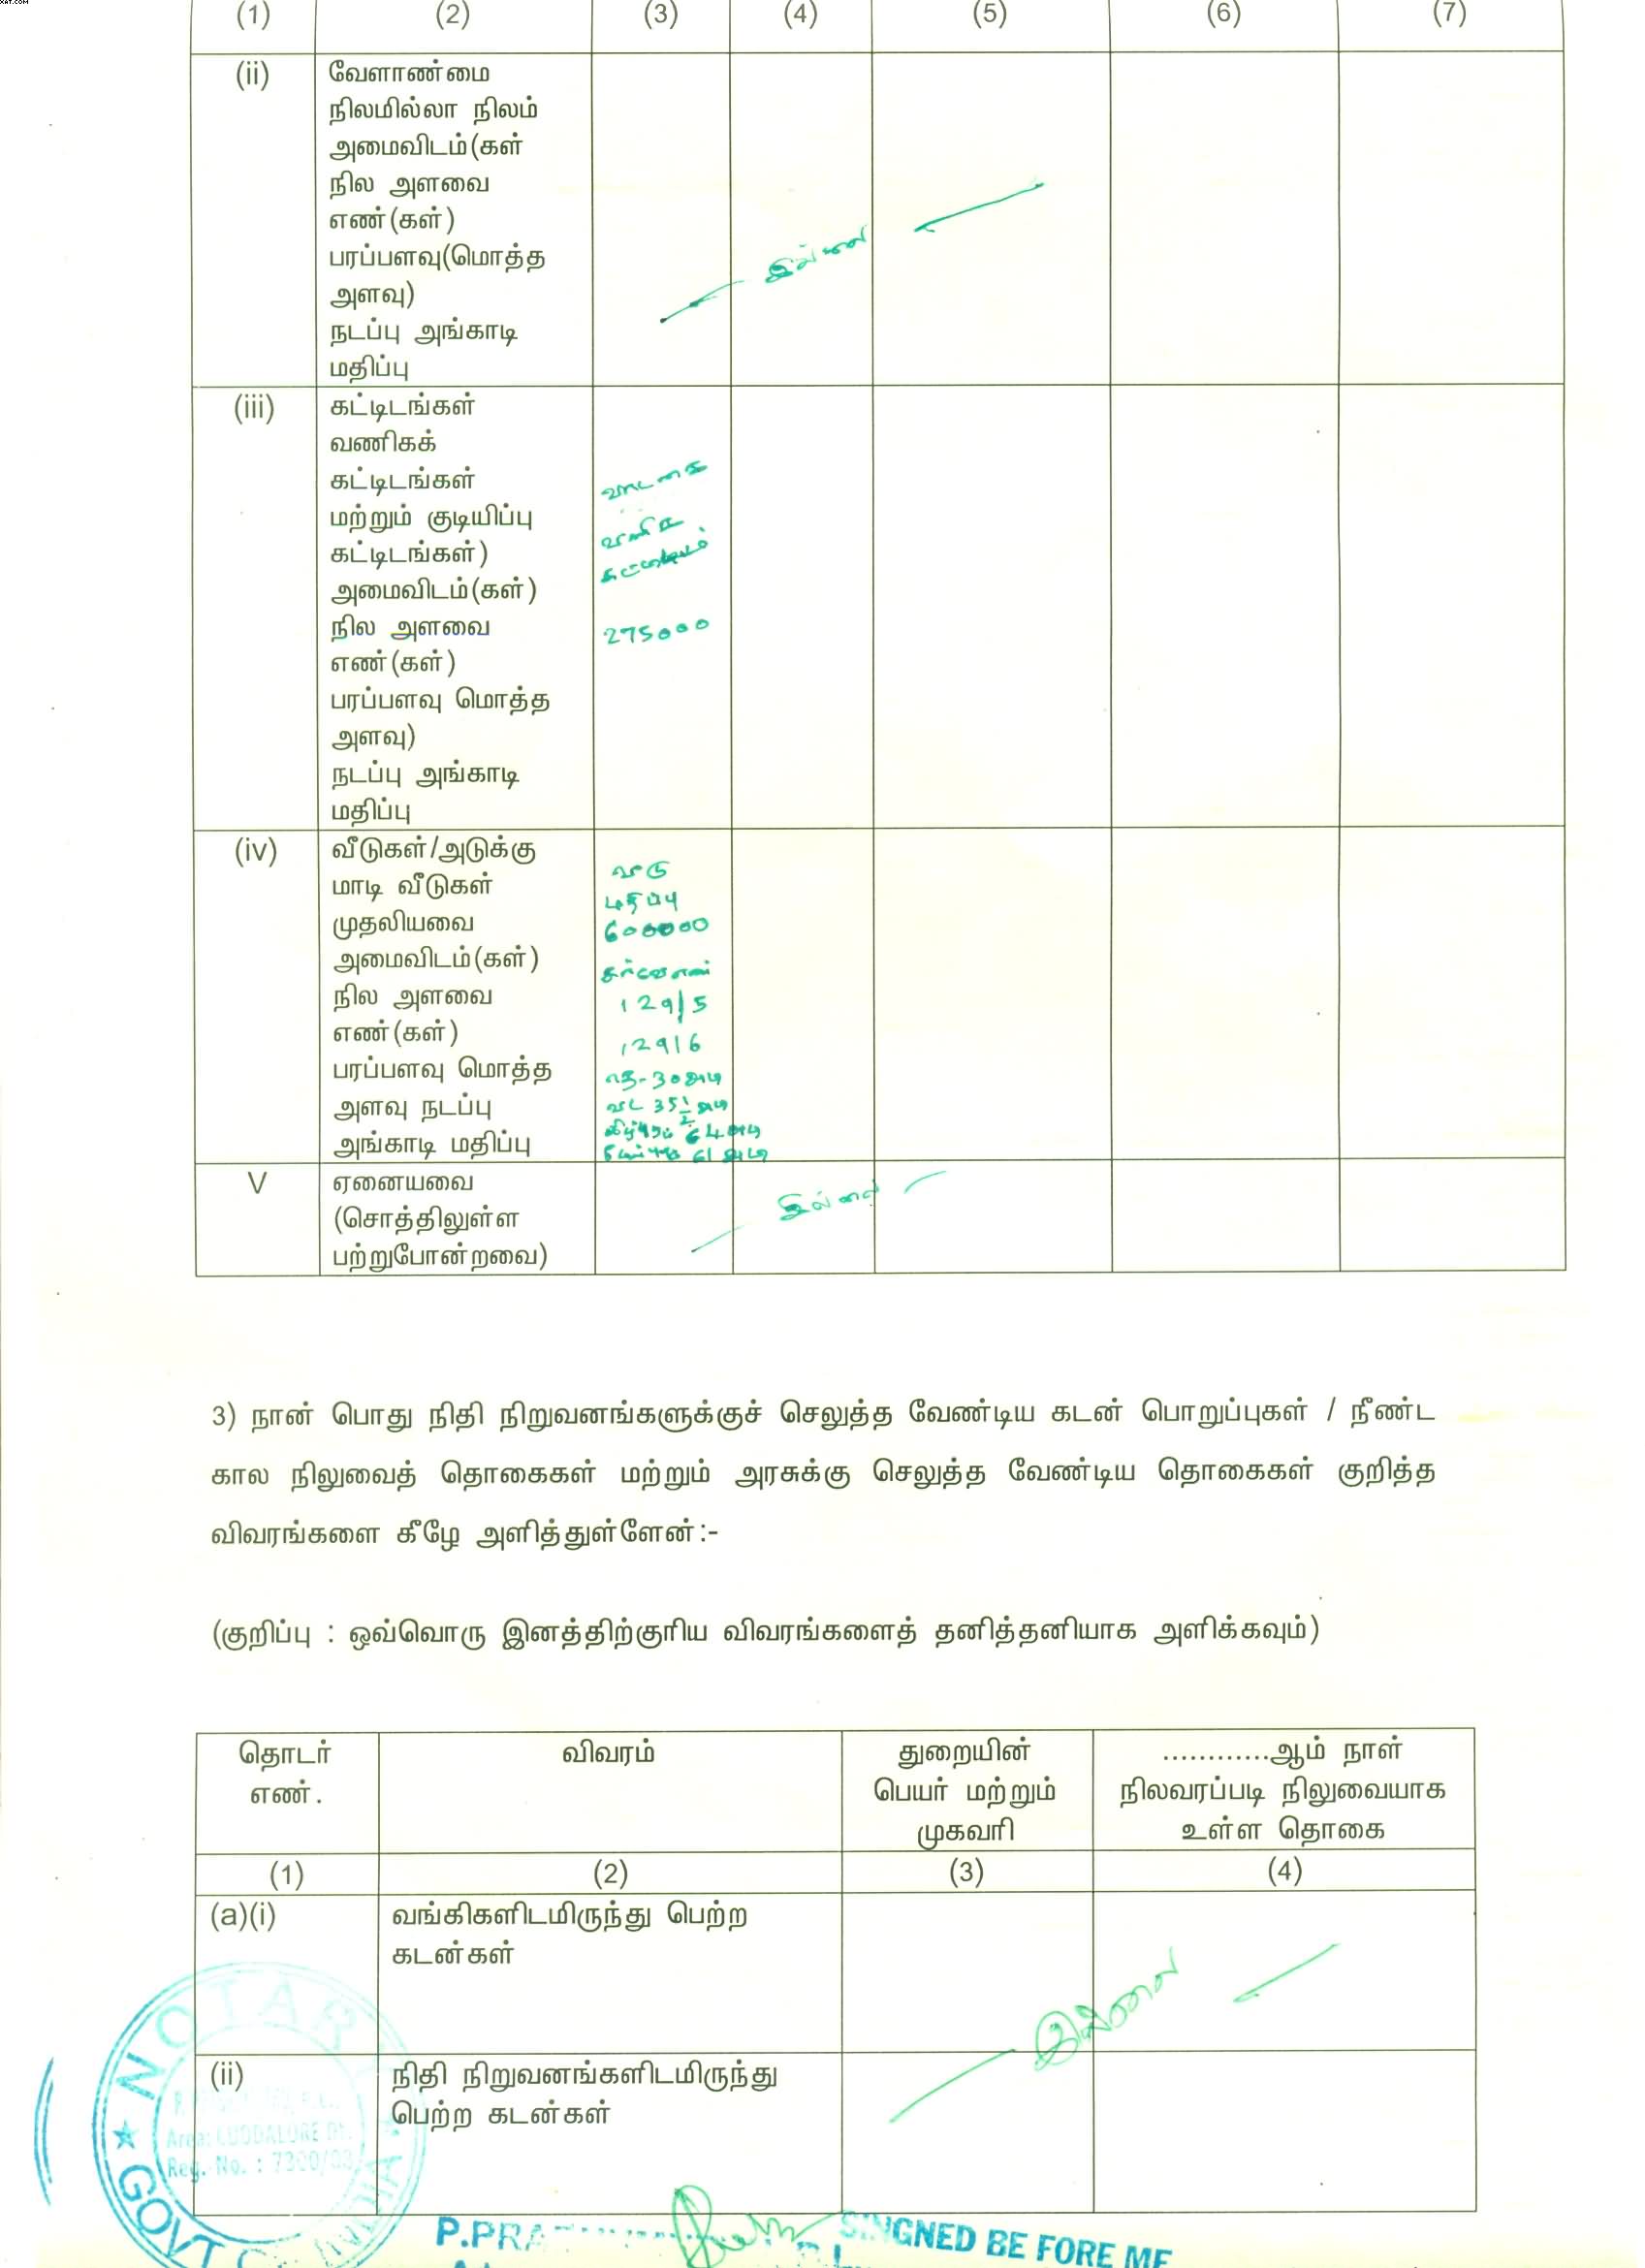 XAT.COM
(1) (2) (3) (4) (5) (6) (7)
(ii) வேளாண்மை
நிலமில்லா நிலம்
அமைவிடம்(கள்
நில அளவை
எண்(கள்)
பரப்பளவு(மொத்த
அளவு)
நடப்பு அங்காடி
மதிப்பு
இல்லை
(iii) கட்டிடங்கள்
வணிகக்
கட்டிடங்கள்
மற்றும் குடியிப்பு
கட்டிடங்கள்)
அமைவிடம்(கள்)
நில அளவை
எண்(கள்)
பரப்பளவு மொத்த
அளவு)
நடப்பு அங்காடி
மதிப்பு
வாடகை
வணிக
கட்டிடம்
275000
(iv) வீடுகள்/அடுக்கு
மாடி வீடுகள்
முதலியவை
அமைவிடம்(கள்)
நில அளவை
எண்(கள்)
பரப்பளவு மொத்த
அளவு நடப்பு
அங்காடி மதிப்பு
வீடு
மதிப்பு
600000
சர்வே எண்
129/5
129/6
தெ-30 அடி
வட 35 1/2 அடி
64 அடி
61 அடி
V ஏனையவை
(சொத்திலுள்ள
பற்றுபோன்றவை)
இல்லை
3) நான் பொது நிதி நிறுவனங்களுக்குச் செலுத்த வேண்டிய கடன் பொறுப்புகள் / நீண்ட
கால நிலுவைத் தொகைகள் மற்றும் அரசுக்கு செலுத்த வேண்டிய தொகைகள் குறித்த
விவரங்களை கீழே அளித்துள்ளேன்:-
(குறிப்பு : ஒவ்வொரு இனத்திற்குரிய விவரங்களைத் தனித்தனியாக அளிக்கவும்)
தொடர்
எண்.
விவரம்
துறையின்
பெயர் மற்றும்
முகவரி
............ஆம் நாள்
நிலவரப்படி நிலுவையாக
உள்ள தொகை
(1) (2) (3) (4)
(a)(i) வங்கிகளிடமிருந்து பெற்ற
கடன்கள்
இல்லை
(ii) நிதி நிறுவனங்களிடமிருந்து
பெற்ற கடன்கள்
NOTARY
Area: CUDDALORE Dt.
Reg. No. :
GOVT
P.PRA
SINGNED BE FORE ME